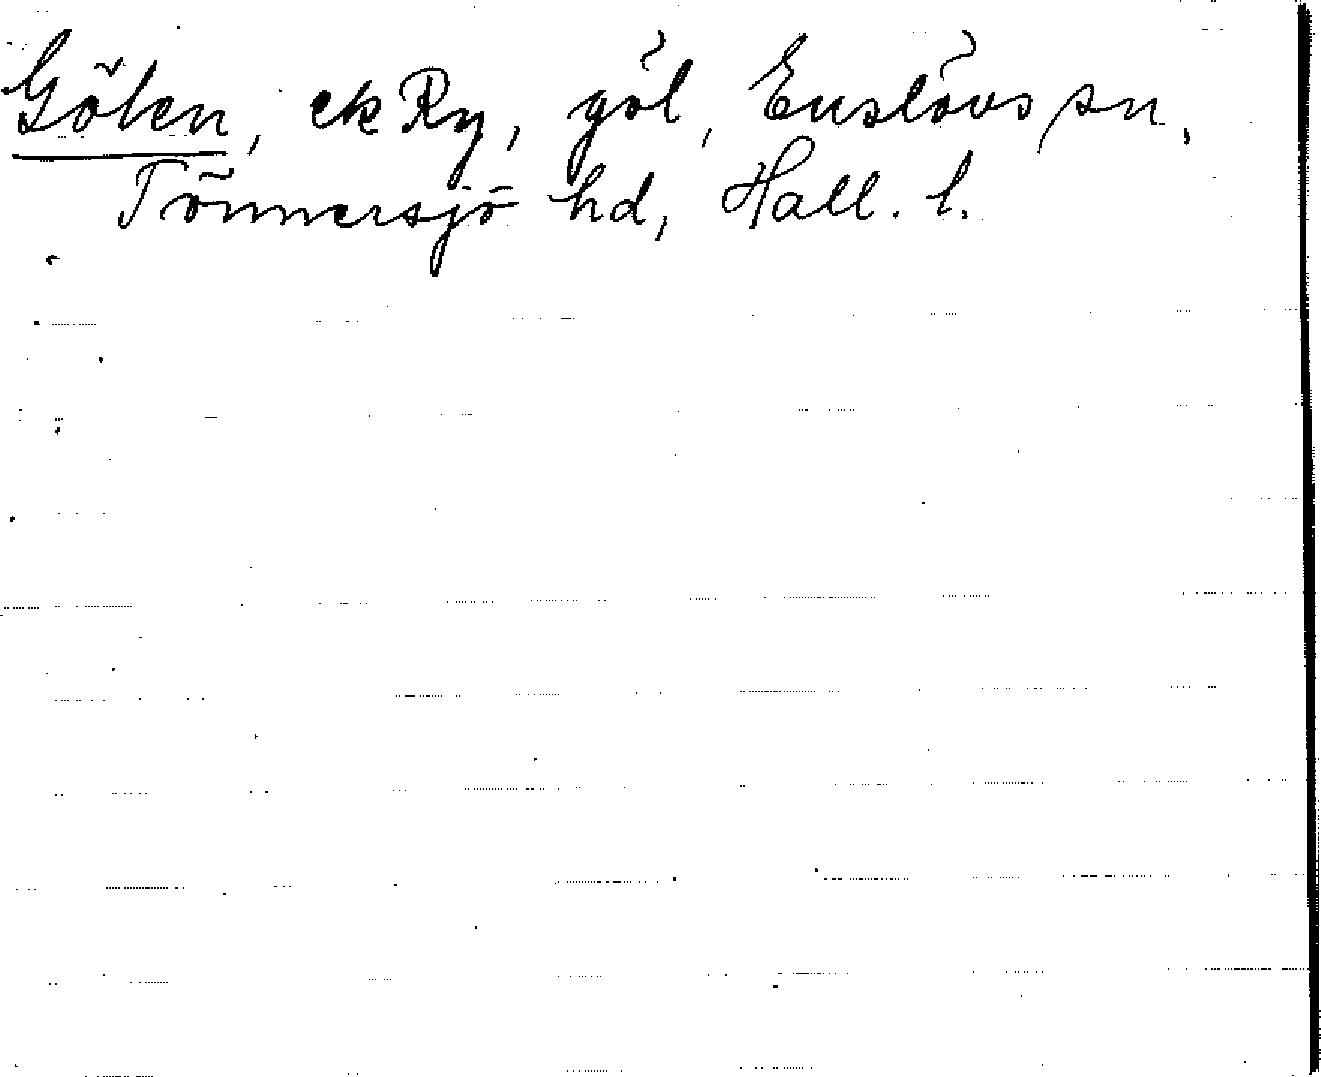 Gölen, ek Ry, göl, Enslövs sn,
Tönnersjö hd, Hall. l.